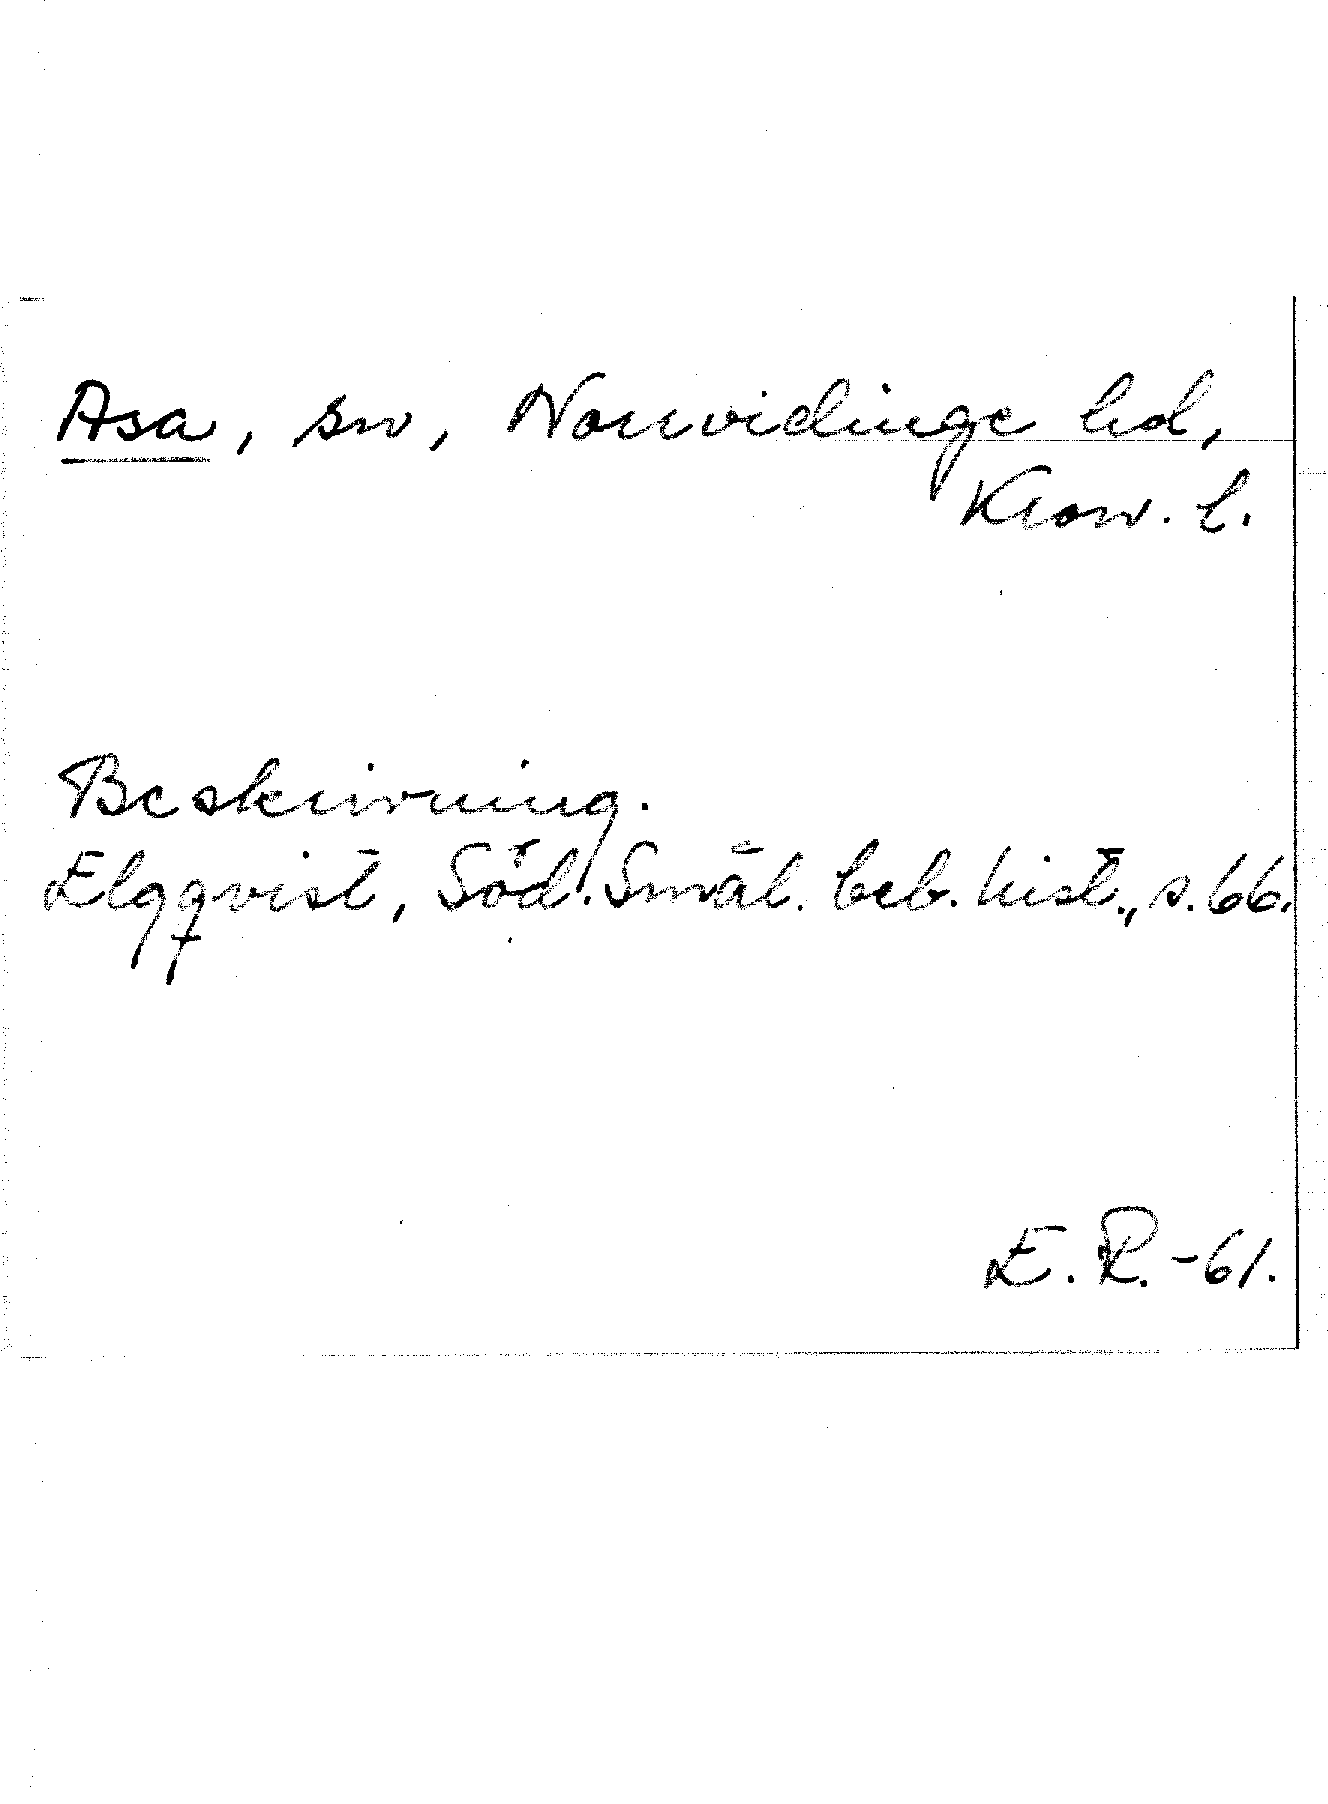 Asa, sn, Norrvidinge hd,
Kron. l.
Beskrivning.
Elgqvist, Söd. Smål. beb. hist., s. 66.
E. R. -61.